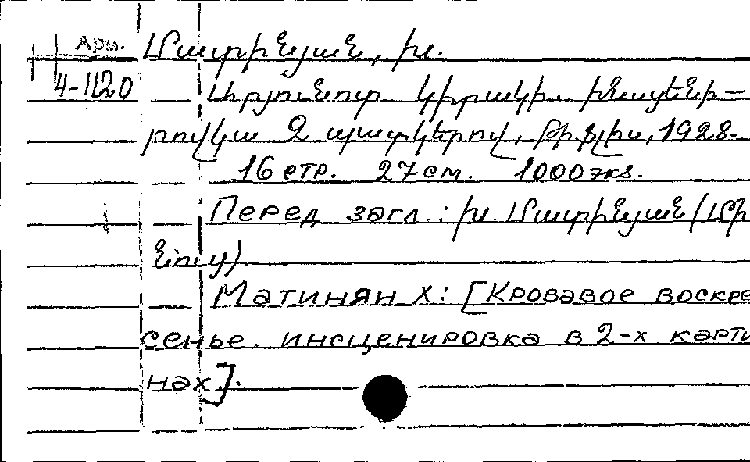 Арм. Մատինյան, Խ.
4-1120 Արյունոտ կիրակի. ինսցենի-
րովկա 2 պատկերով, Թիֆլիս, 1928.
16 стр. 27 см. 1000 экз.
Перед загл.: Խ Մատինյան (
Матинян Х: [Кровавое воскре
сенье. инсценировка в 2-х карти
нах].